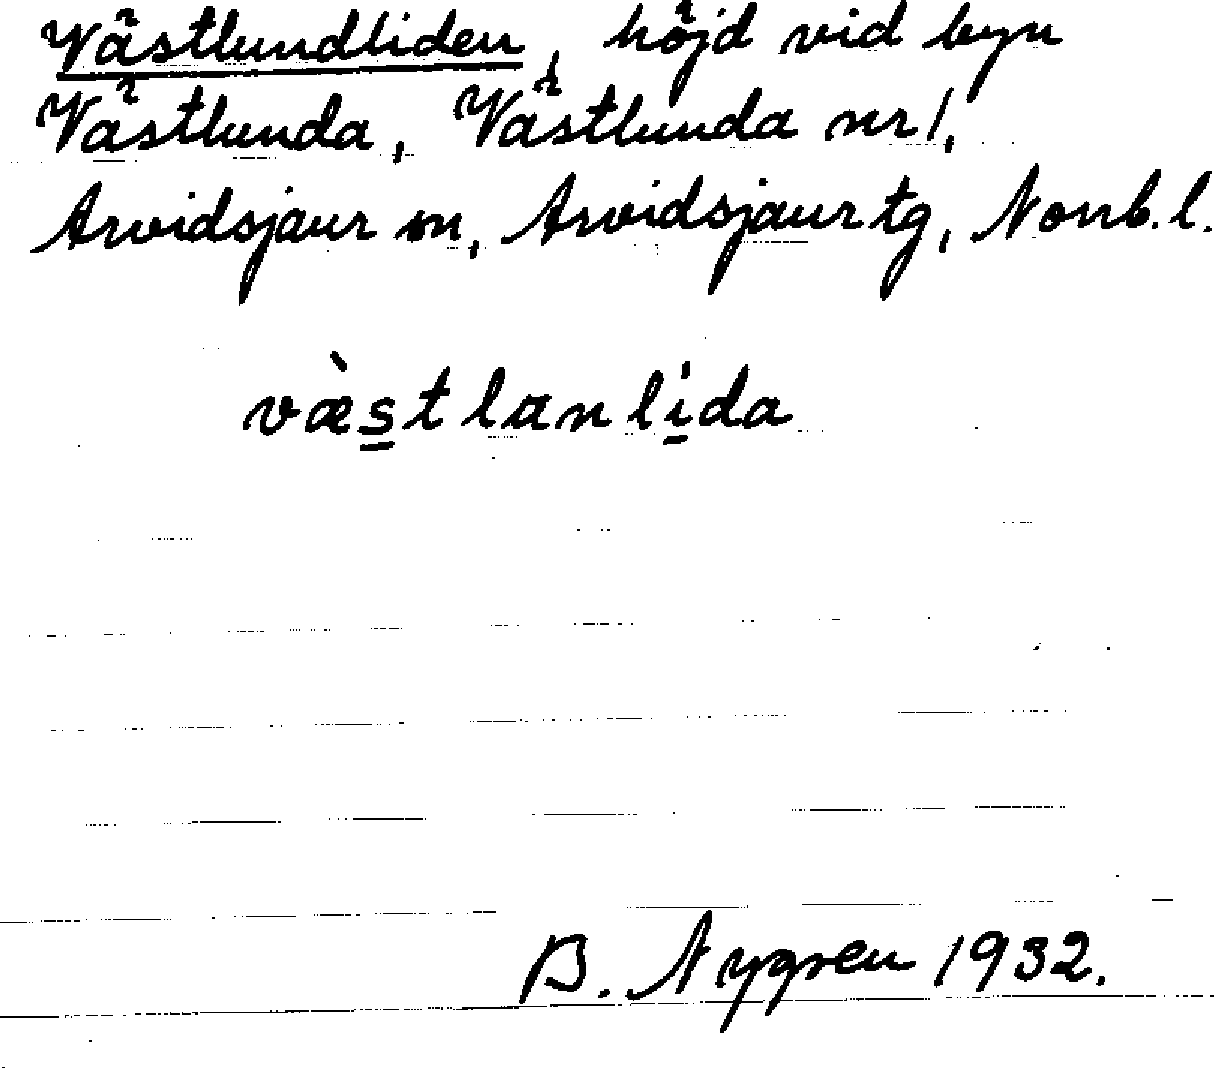 Västlundliden, höjd vid byn
Västlunda, Västlunda nr 1,
Arvidsjaur sn, Arvidsjaur tg, Norrb. l.
væ̀s̲tlanli̲da
B. Nygren 1932.